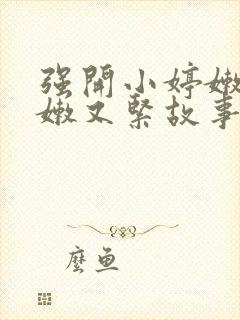 强開小婷嫩
嫩又緊故事
麼魚